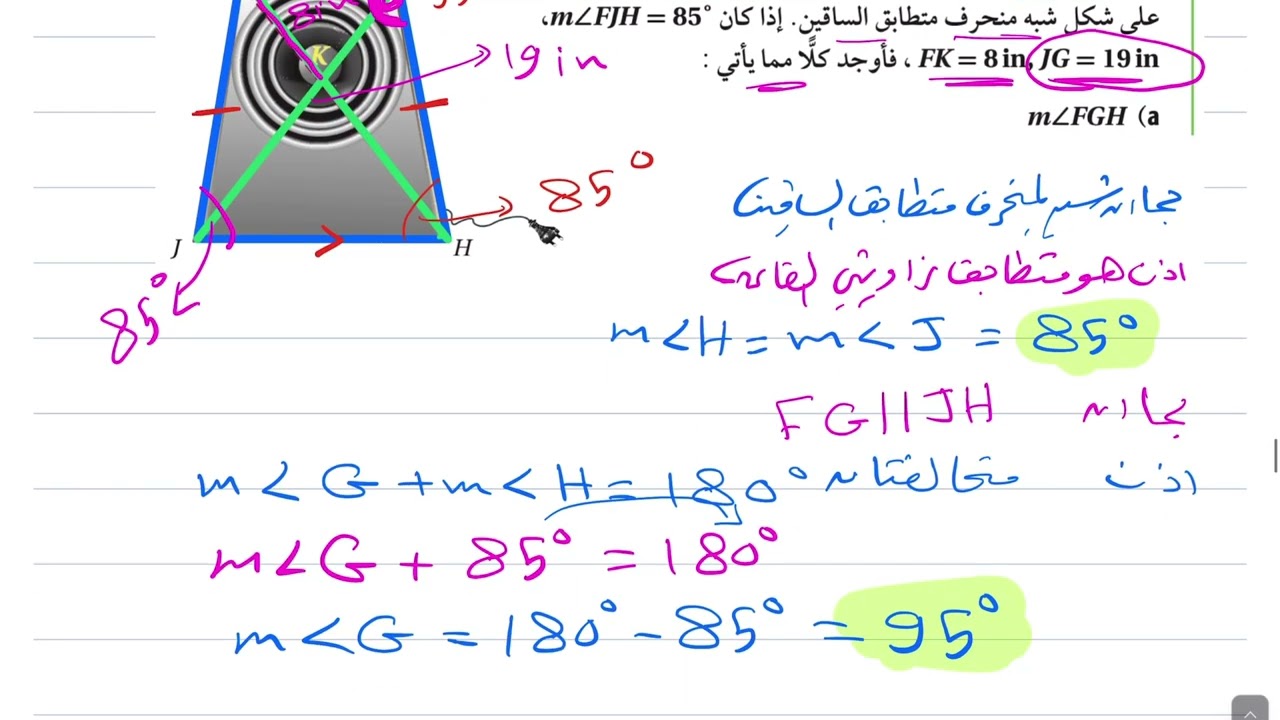 على شكل شبه منحرف متطابق الساقين. إذا كان m∠FJH = 85°،
FK = 8 in, JG = 19 in ، فأوجد كلًّا مما يأتي :
m∠FGH (a
8in
K
19 in
85°
J
H
85°
بما ان شبه المنحرف متطابق الساقين
اذن هو متطابق زاويتي القاعدة
m<H = m<J = 85°
بما ان FG || JH
اذن متحالفتان m<G + m<H = 180°
m<G + 85° = 180°
m<G = 180° - 85° = 95°